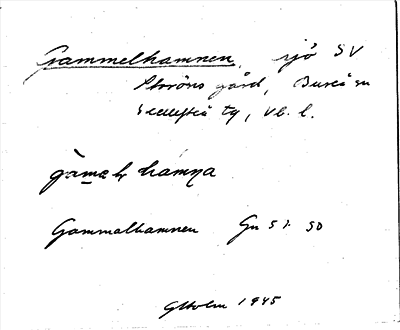 Gammelhamnen, sjö SV
Storöns gård, Bureå sn
Skellefteå tg, Vb. l.
gàmaļ hámna
Gammalhamnen Gn 51 SO
GHolm 1945